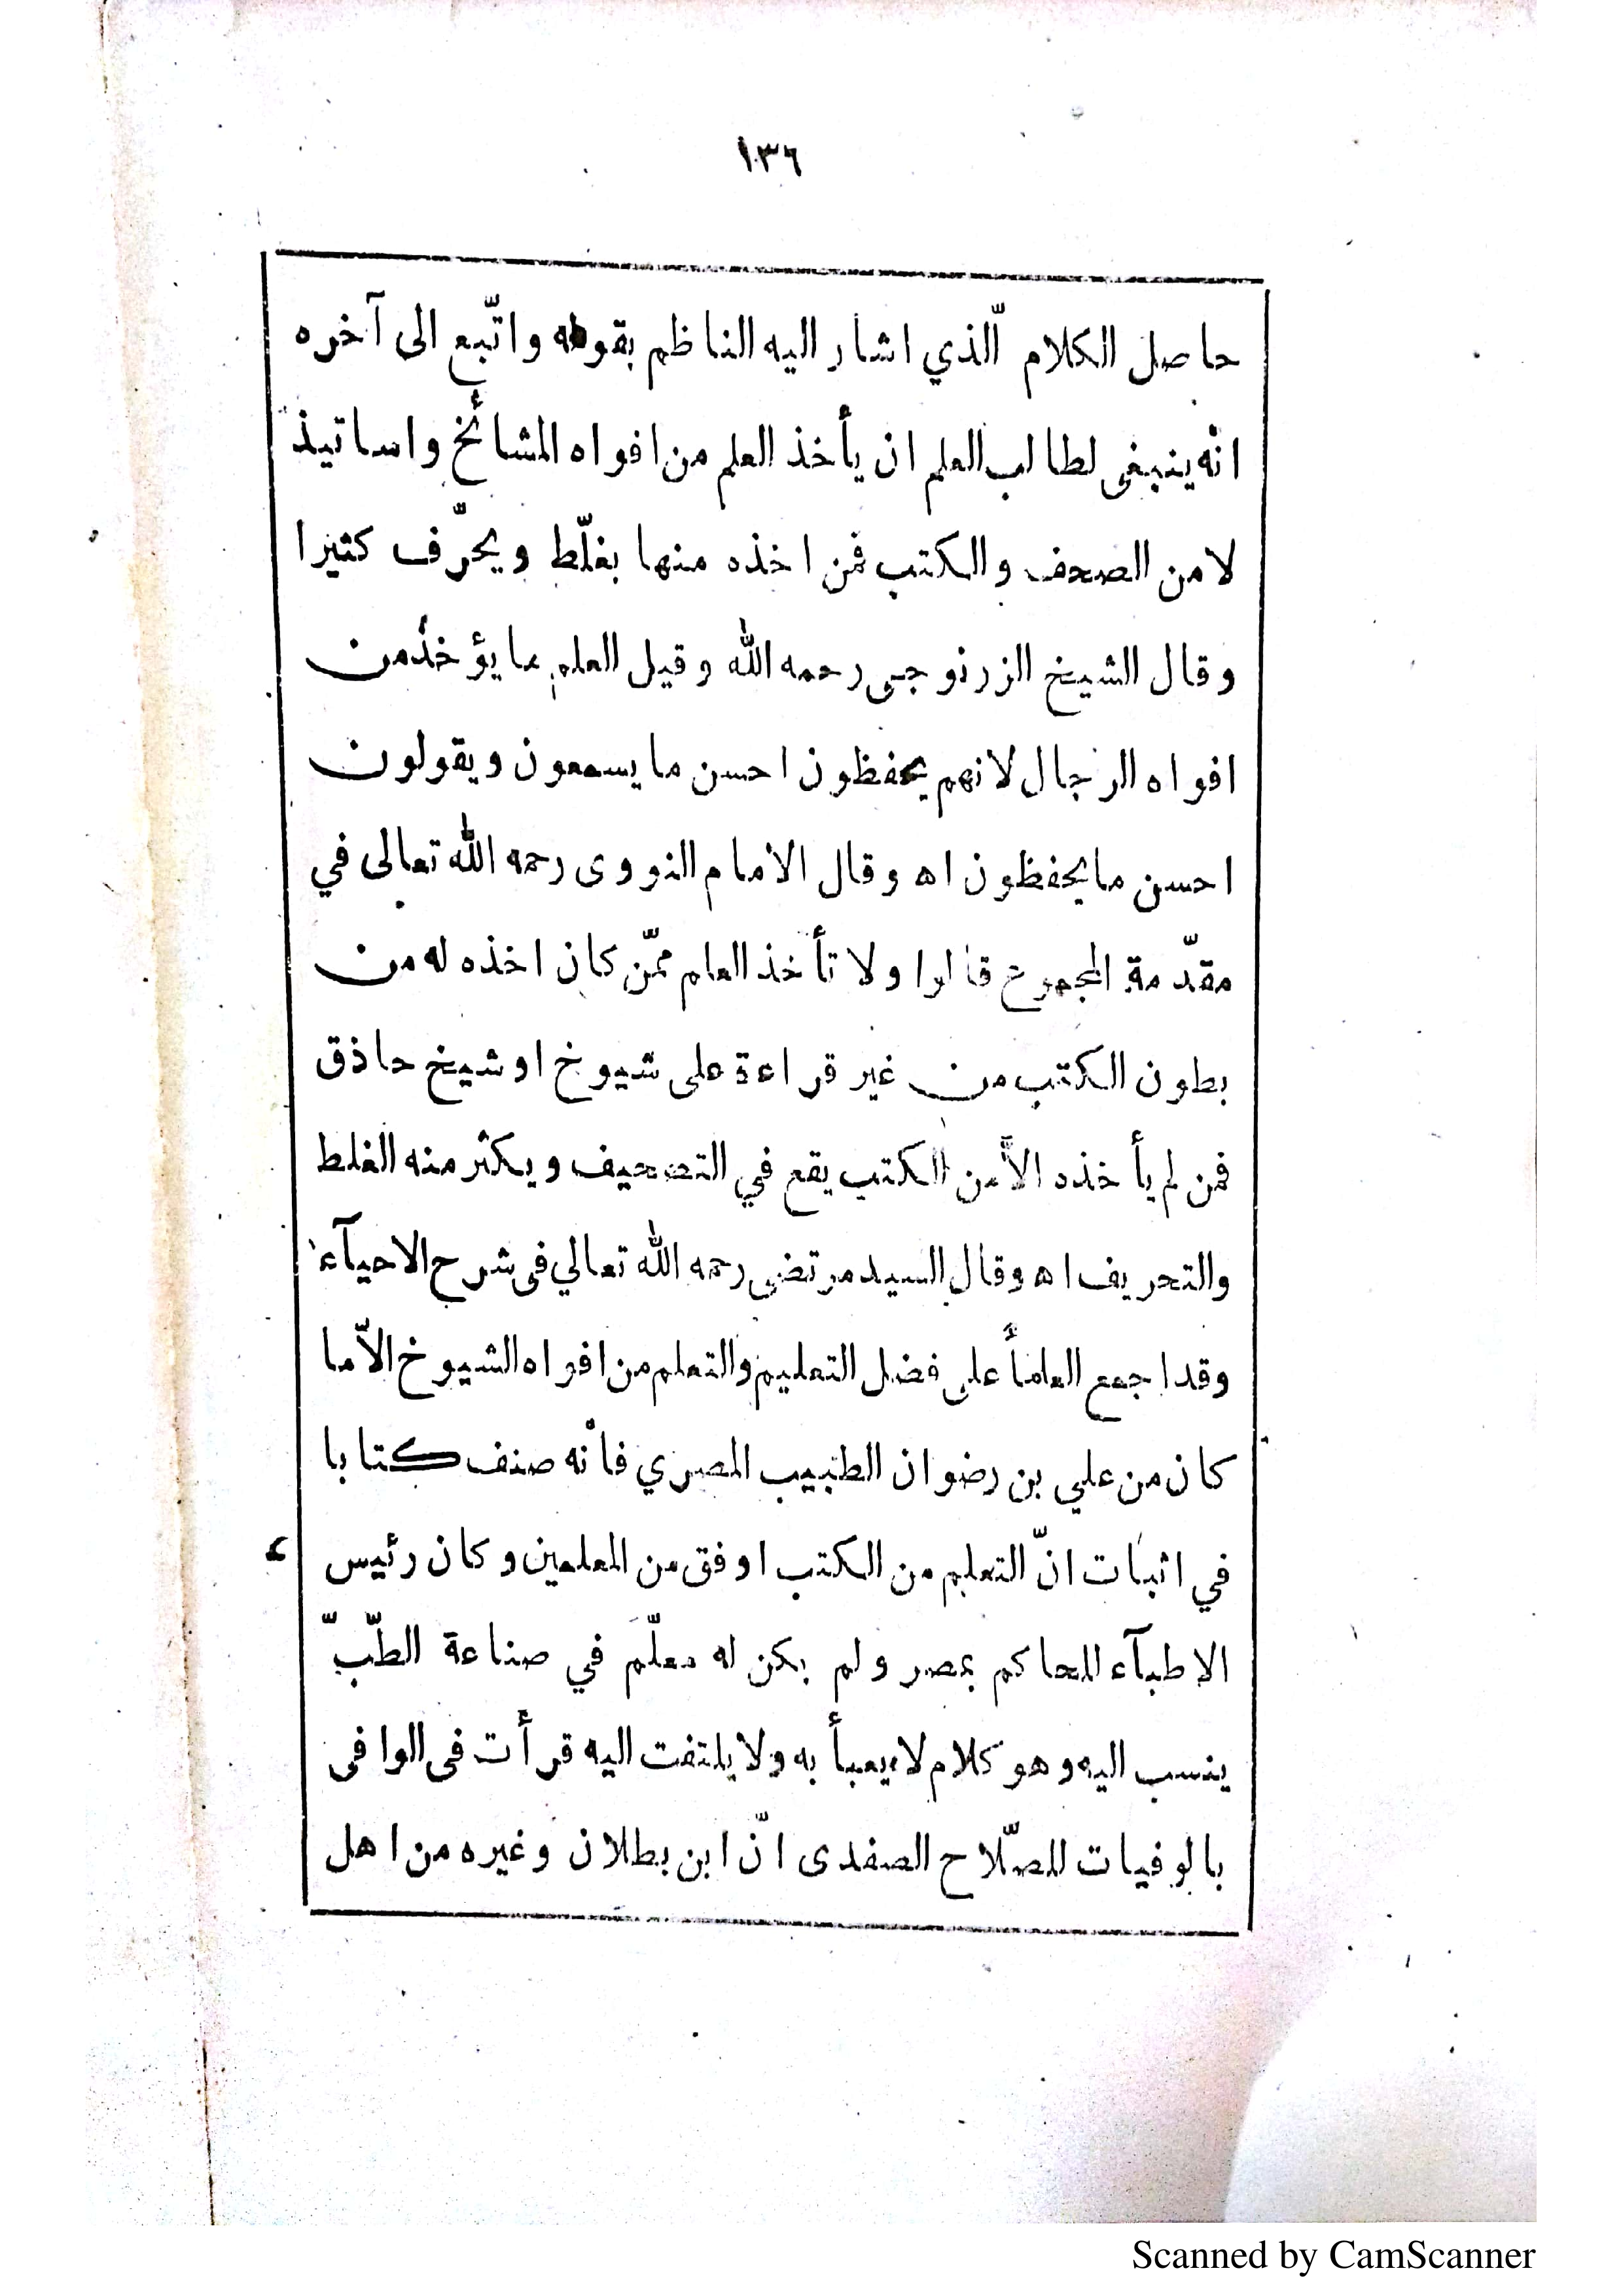 ١٣٦
حاصل الكلام الّذي اشار اليه الناظم بقوله واتّبع الى آخره
انّه ينبغى لطالب العلم ان يأخذ العلم من افواه المشائخ واساتيذ
لا من الصحف والكتب فمن اخذه منها يغلّط ويحرّف كثيرا
وقال الشيخ الزرنوجى رحمه الله وقيل العلم ما يؤخذ من
افواه الرجال لانهم يحفظون احسن ما يسمعون ويقولون
احسن ما يحفظون اه وقال الامام النووى رحمه الله تعالى في
مقدّمة المجموع قالوا ولا تأخذ العلم ممّن كان اخذه له من
بطون الكتب من غير قراءة على شيوخ او شيخ حاذق
فمن لم يأخذه الاّ من الكتب يقع في التصحيف ويكثر منه الغلط
والتحريف اه وقال السيد مرتضى رحمه الله تعالي فى شرح الاحيآء
وقد اجمع العلمأ على فضل التعليم والتعلم من افواه الشيوخ الاّ ما
كان من علي بن رضوان الطبيب المصري فأنه صنف كتابا
في اثبات انّ التعلم من الكتب اوفق من المعلمين وكان رئيس
الاطبآء للحاكم بمصر ولم يكن له معلّم في صناعة الطّبّ
ينسب اليه وهو كلام لا يعبأ به ولا يلتفت اليه قرأت فى الوافى
بالوفيات للصّلاح الصفدى انّ ابن بطلان وغيره من اهل
Scanned by CamScanner